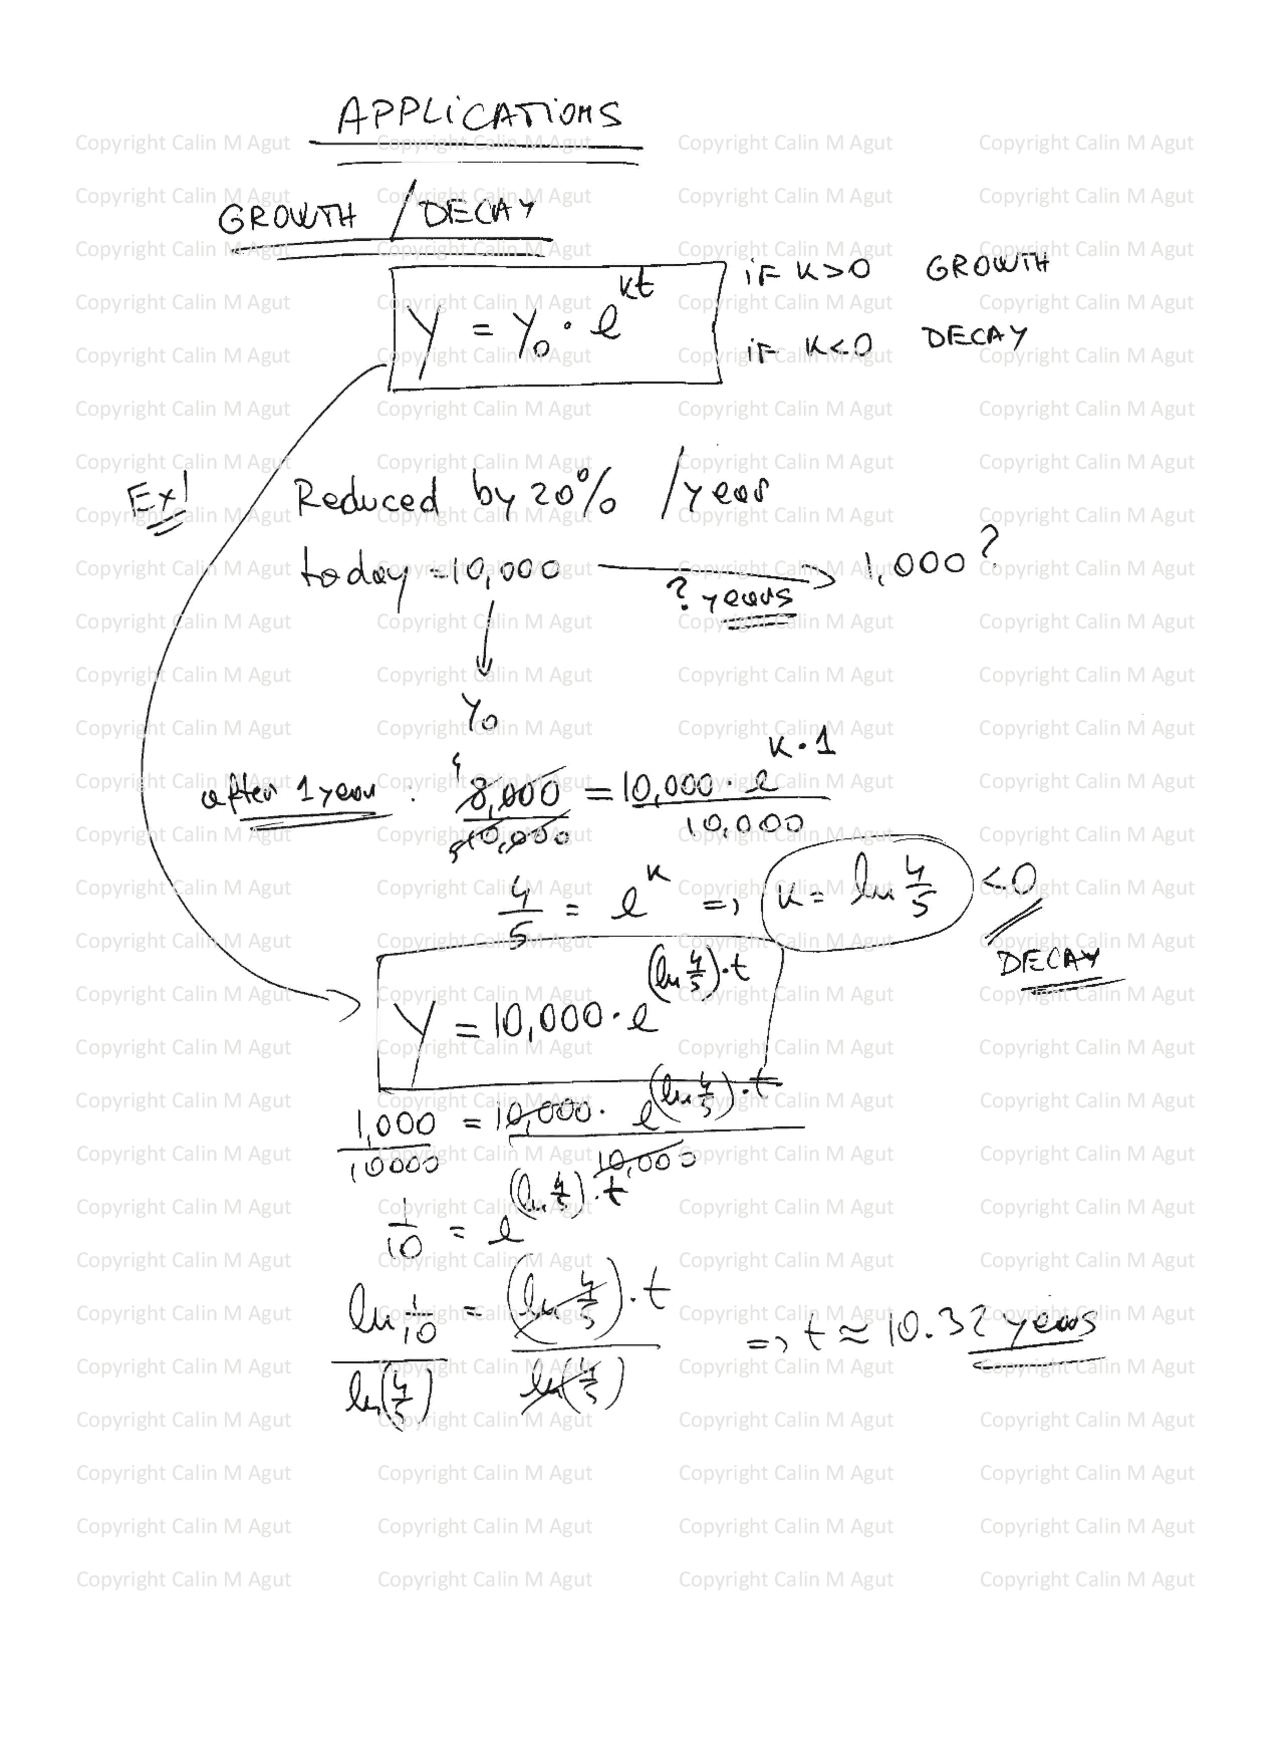 APPLICATIONS
GROWTH / DECAY
Y = Y₀ · e^(kt)
if k>0 GROWTH
if k<0 DECAY
Ex! Reduced by 20% / year
today = 10,000 → 1,000?
? years
Y₀
after 1 year: 8,000/10,000 = 10,000 · e^(k·1)/10,000
4 5
4/5 = e^k => k = ln 4/5 <0
DECAY
Y = 10,000 · e^((ln 4/5)·t)
1,000/10000 = 10,000 · e^((ln 4/5)·t)/10,000
1/10 = e^((ln 4/5)·t)
ln 1/10 / ln(4/5) = (ln 4/5)·t / ln(4/5) => t ≈ 10.32 years
Copyright Calin M Agut